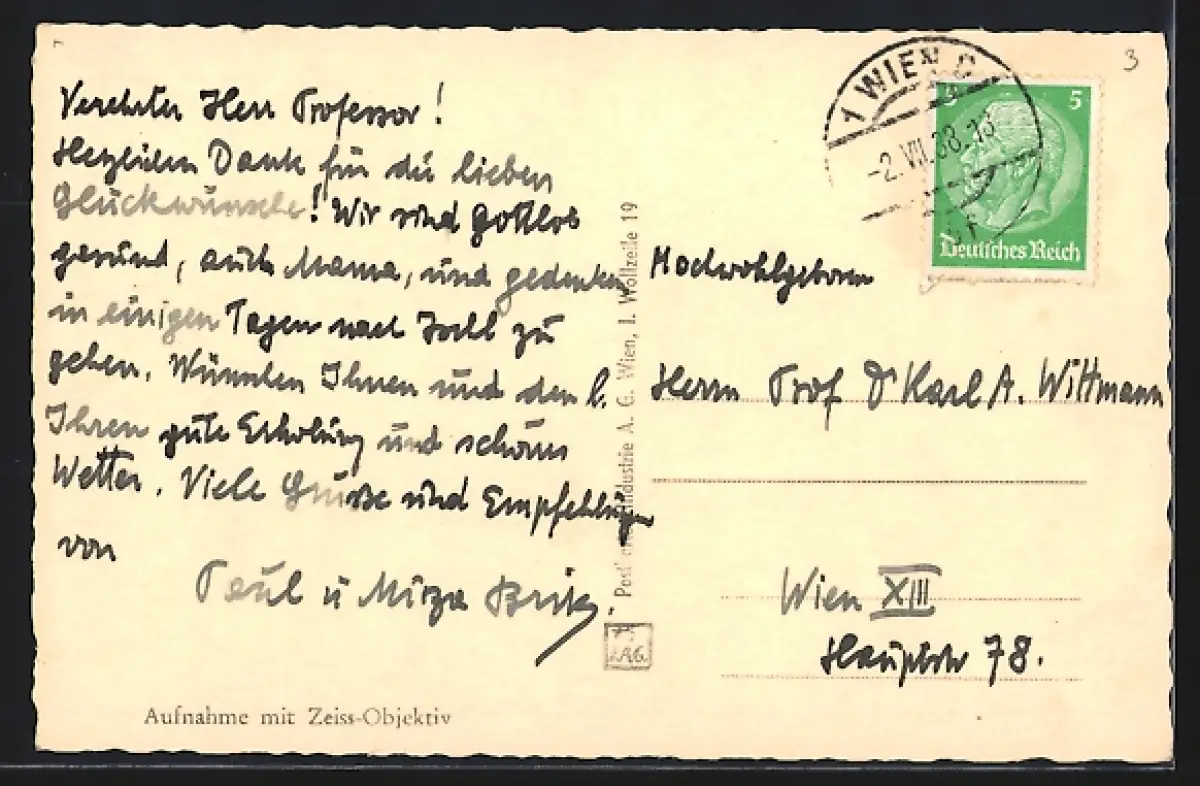 Verehrter Herr Professor!
Herzlichen Dank für die lieben
Glückwünsche! Wir sind Gottlob
gesund, auch Mama, und gedenken
in einigen Tagen nach Ischl zu
gehen. Wünschen Ihnen und den l.
Ihren gute Erholung und schönes
Wetter. Viele Grüße und Empfehlungen
von
Paul u Mirza
Aufnahme mit Zeiss-Objektiv
Postkartenindustrie A. G. Wien, I. Wollzeile 19
1 WIEN
-2.VII.38.-13
5 5
Deutsches Reich
3
Hochwohlgeboren
Herrn Prof Dr Karl A. Wittmann
Wien XIII
Hauptstr 78.